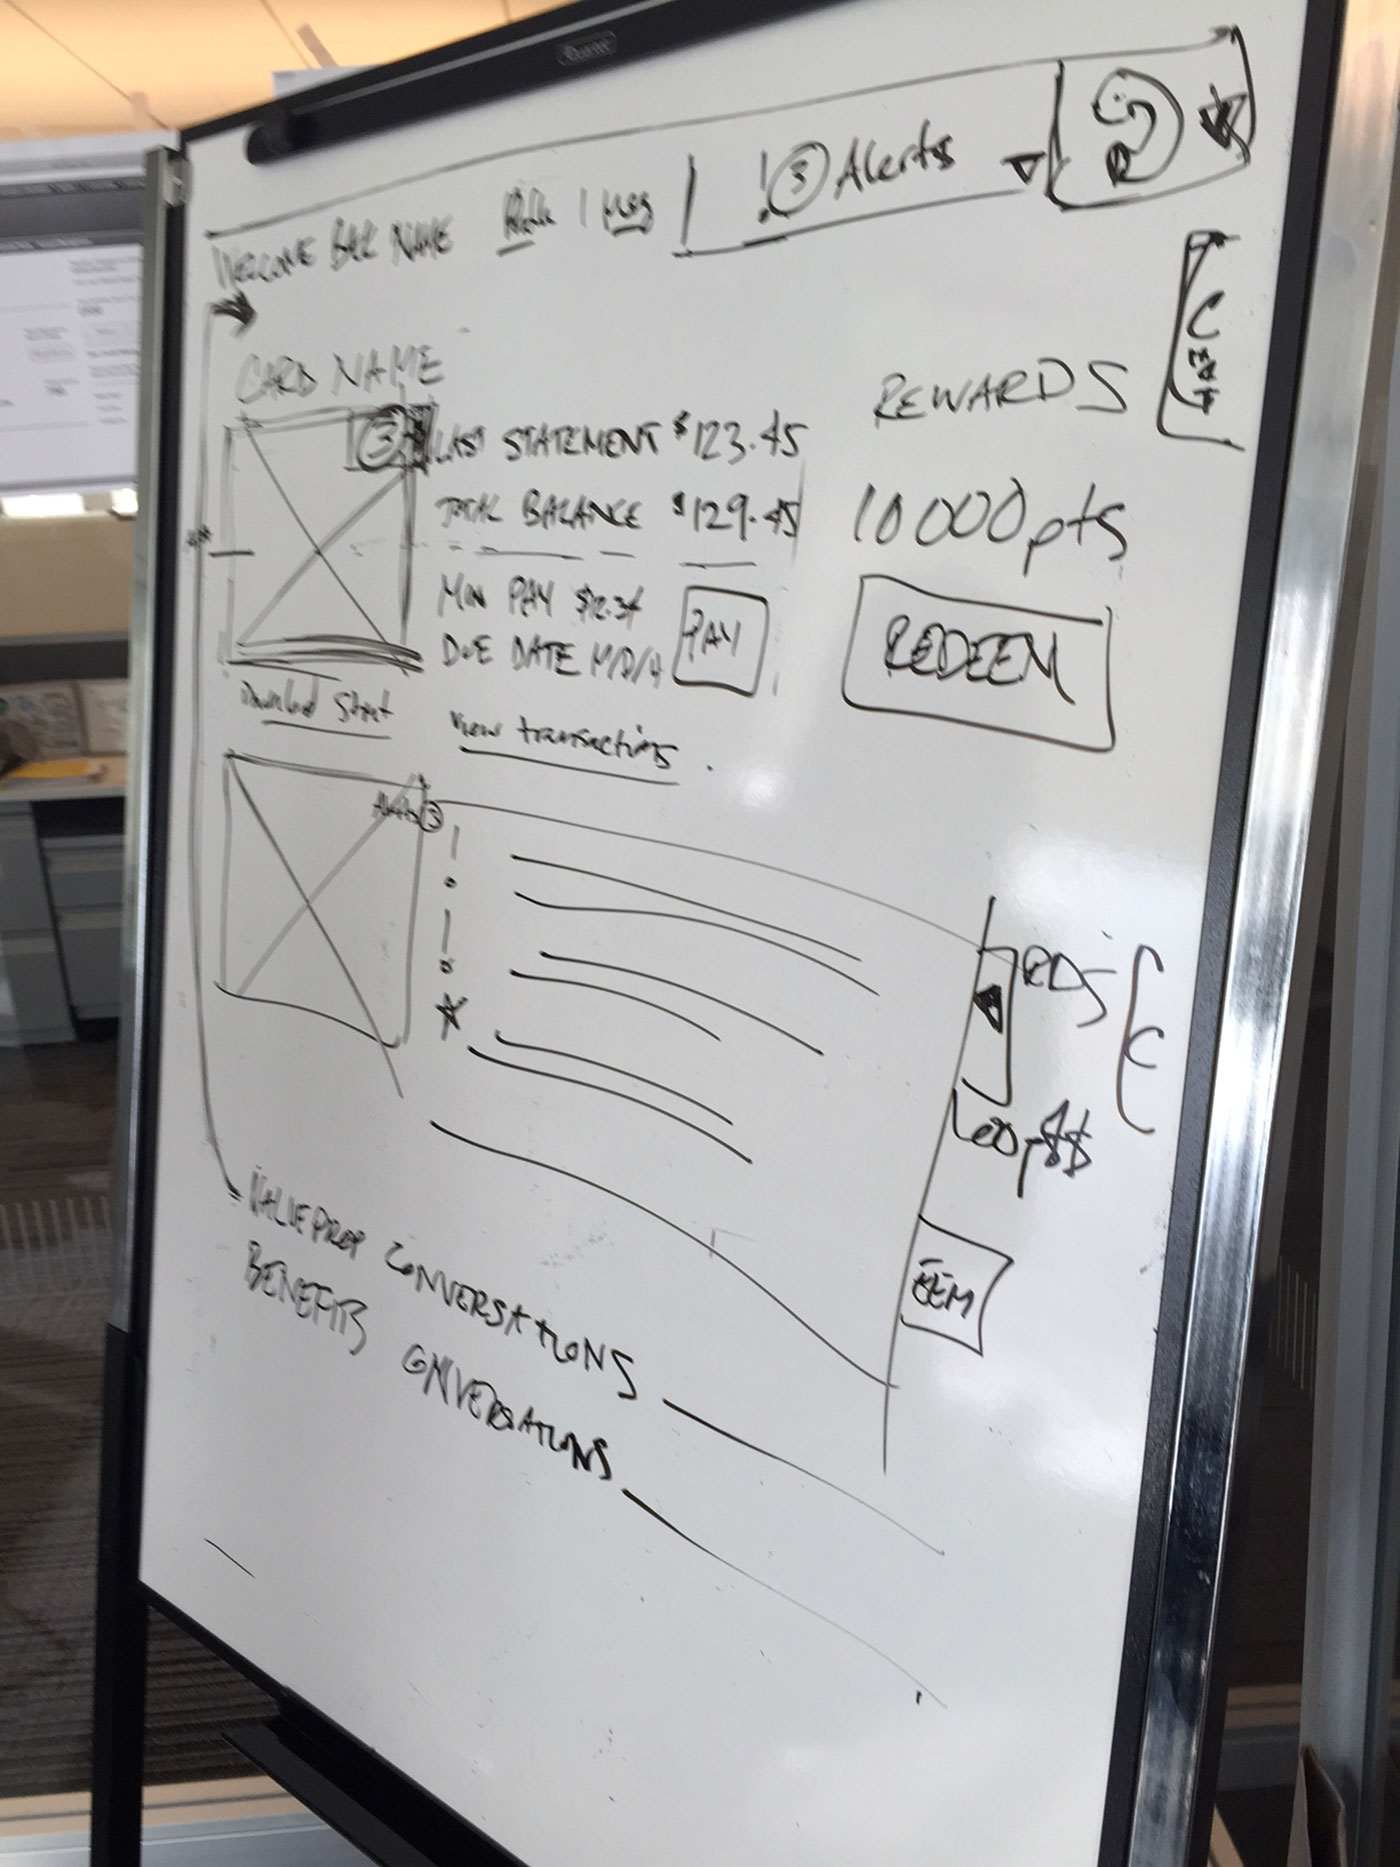 ! 3 Alerts
WELCOME NAME
CARD NAME
3
LAST STATEMENT $123.45
TOTAL BALANCE $129.45
MIN PAY $12.34
DUE DATE M/D/Y
PAY
REWARDS
10000pts
REDEEM
CHAT
Download Stmt
View transactions.
Alerts 3
!
!
RDS
C
EEM
VALUE PROP CONVERSATIONS
BENEFITS CONVERSATIONS